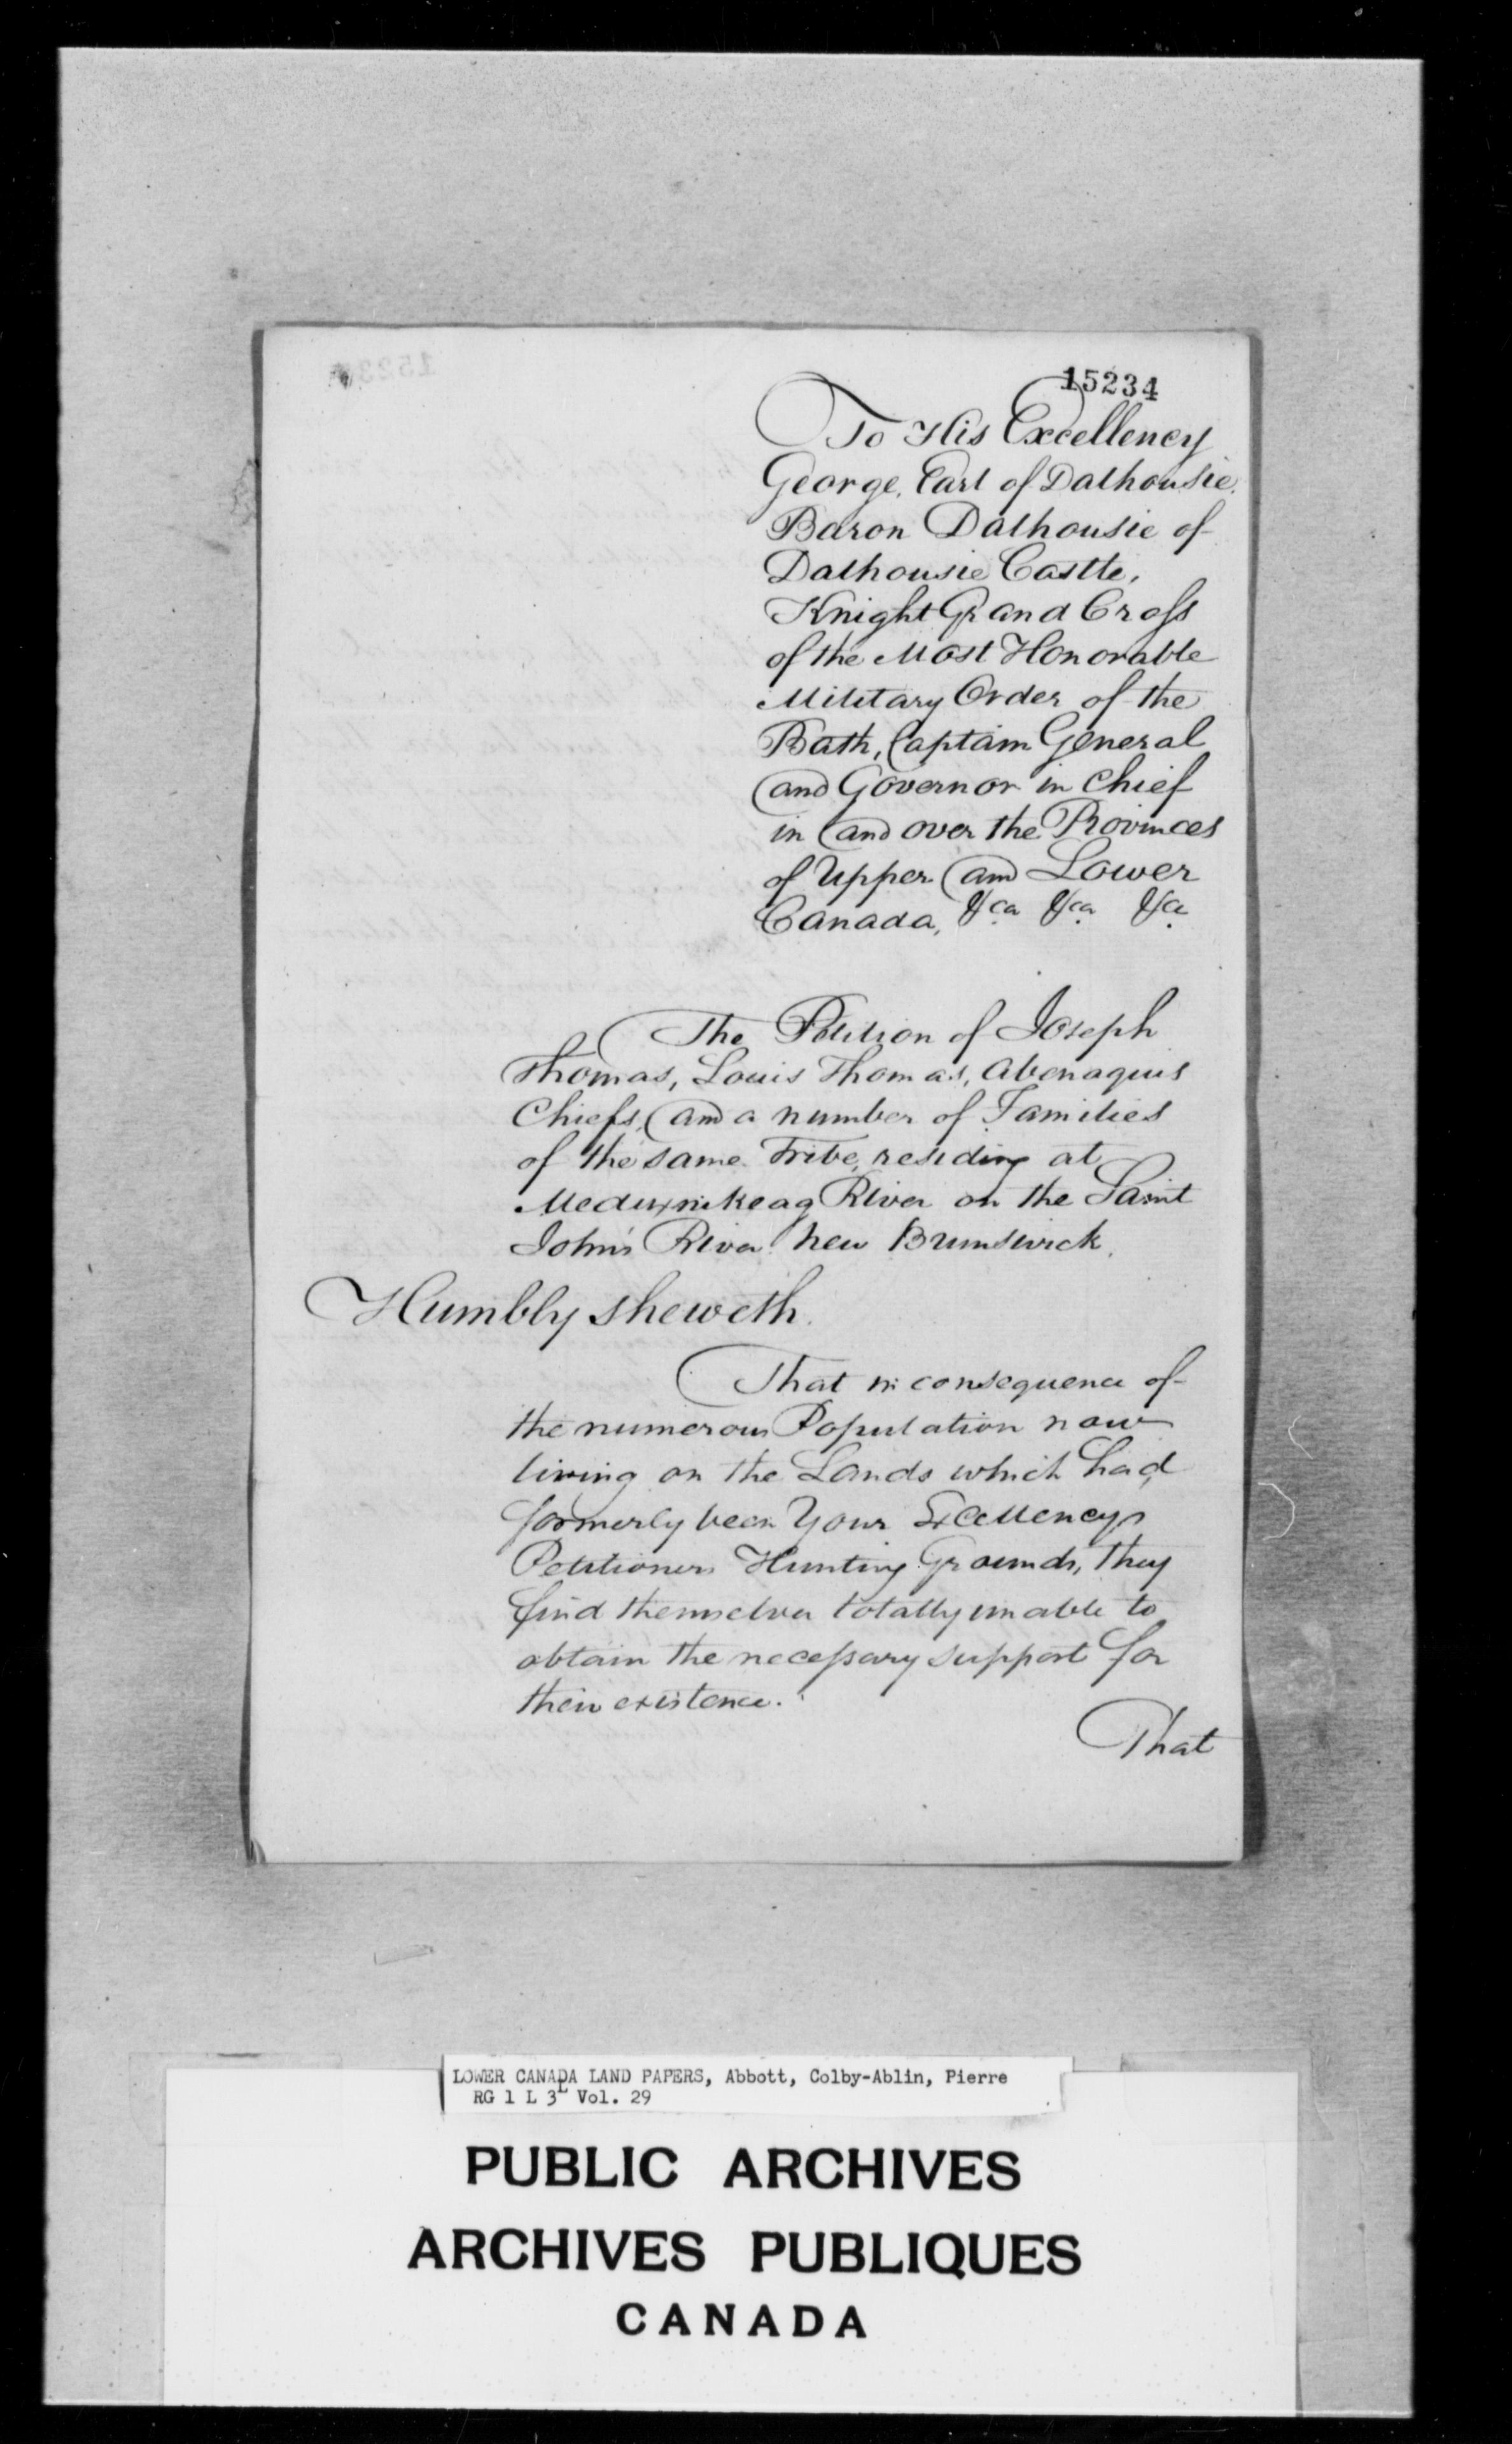 15234
To His Excellency
George, Earl of Dalhousie,
Baron Dalhousie of
Dalhousie Castle,
Knight Grand Cross
of the Most Honorable
Military Order of the
Bath, Captain General
and Governor in Chief
in and over the Provinces
of Upper and Lower
Canada, &ca &ca &ca
The Petition of Joseph
Thomas, Louis Thomas, Abenaquis
Chiefs, and a number of Families
of the same Tribe, residing at
Meduxnikeag River on the Saint
John's River New Brunswick.
Humbly sheweth.
That in consequence of
the numerous Population now
living on the Lands which had,
formerly been Your Excellencys
Petitioners Hunting Grounds, they
find themselves totally unable to
obtain the necessary support for
their existence.
That
LOWER CANADA LAND PAPERS, Abbott, Colby-Ablin, Pierre
RG 1 L 3L Vol. 29
PUBLIC ARCHIVES
ARCHIVES PUBLIQUES
CANADA